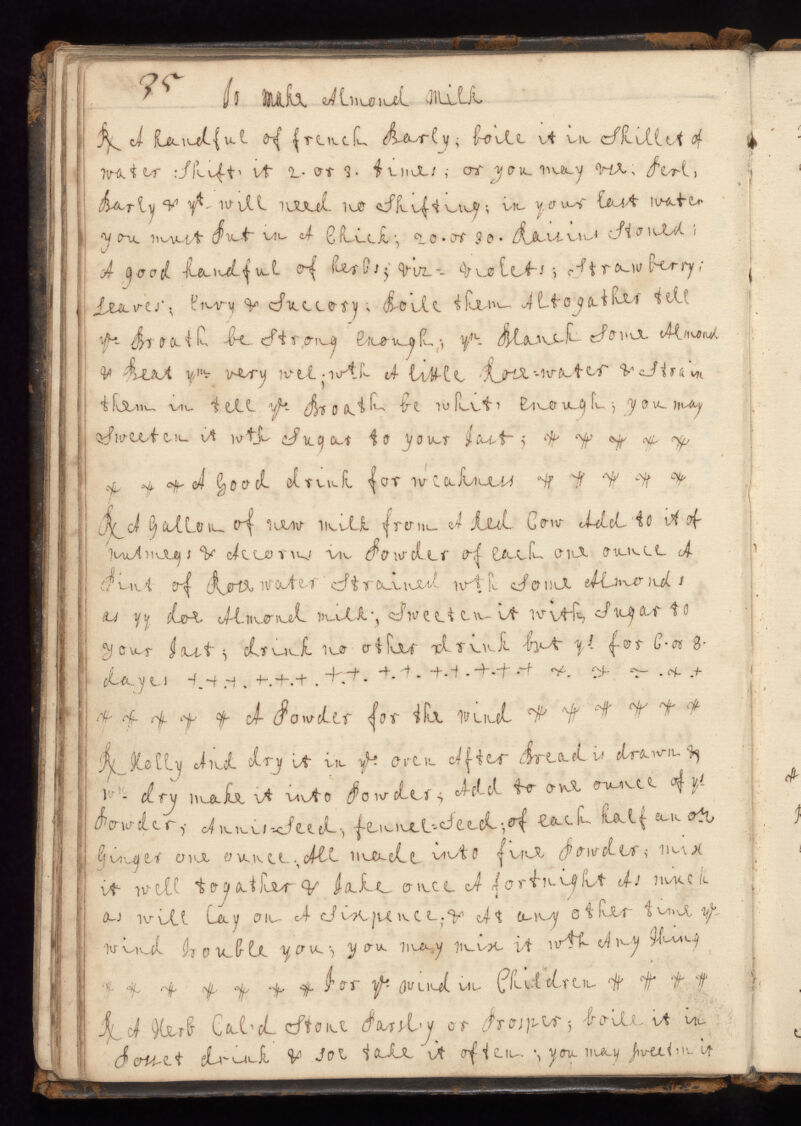 35
To make Almond milk
℞ A handful of french Barly; boile it in Skillet of
water Shift it 2. or 3. times; or you may use. Perl,
Barly & yt will need no Shifting; in your last water
you must Put in A Chick; 20. or 30. Raisins Stoned;
A good handful of herbs; viz- violets; Strawberry;
Leaves; Envy & Succory; Boile them Altogather tell
ye Broath be Strong Enough; yn Blanch Some Almond
& Beat ym very wel; wth A little Rose-water & Strain
them in tell ye Broath be whit, Enough; you may
Sweeten it wth Sugar to your tast;
A Good drink for weakness
℞ A Gallon of new milk from A Red Cow Add to it of
nutmegs & Accorns in Powder of each one ounce A
Pint of Rose water Strained wth Some Almonds
as yy doe Almond milk; Sweeten it with Sugar to
your tast; drink no other drink but yt for 6. or 8.
dayes
A Powder for the wind
℞ Holly And dry it in ye oven After Bread is drawn &
wn dry make it into Powder; Add to one ounce of yt
Powder; Annis-Seed, fennel-Seed; of each half an oz
Ginger one ounce, All made into fine Powder; mix
it well togather & take once A fortnight As much
as will lay on A Sixpence; & At any other time ye
wind trouble you; you may mix it wth Any thing
For ye wind in Children
℞ A Herb Cal'd Stone Parsly or Prosper; boile it in
Posset drink & soe take it often; you may sweeten it